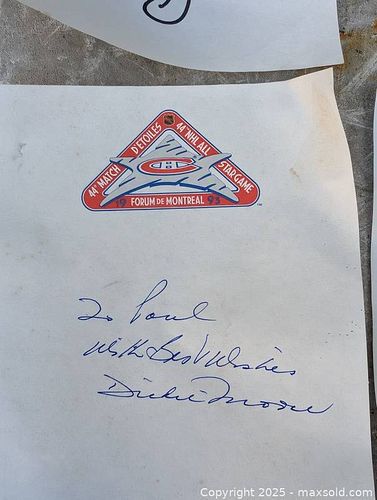 44e MATCH D'ETOILES 44th NHL ALL STAR GAME
19 FORUM DE MONTREAL 93
To Paul
With Best Wishes
Dickie Moore
Copyright © 2025 - maxsold.com